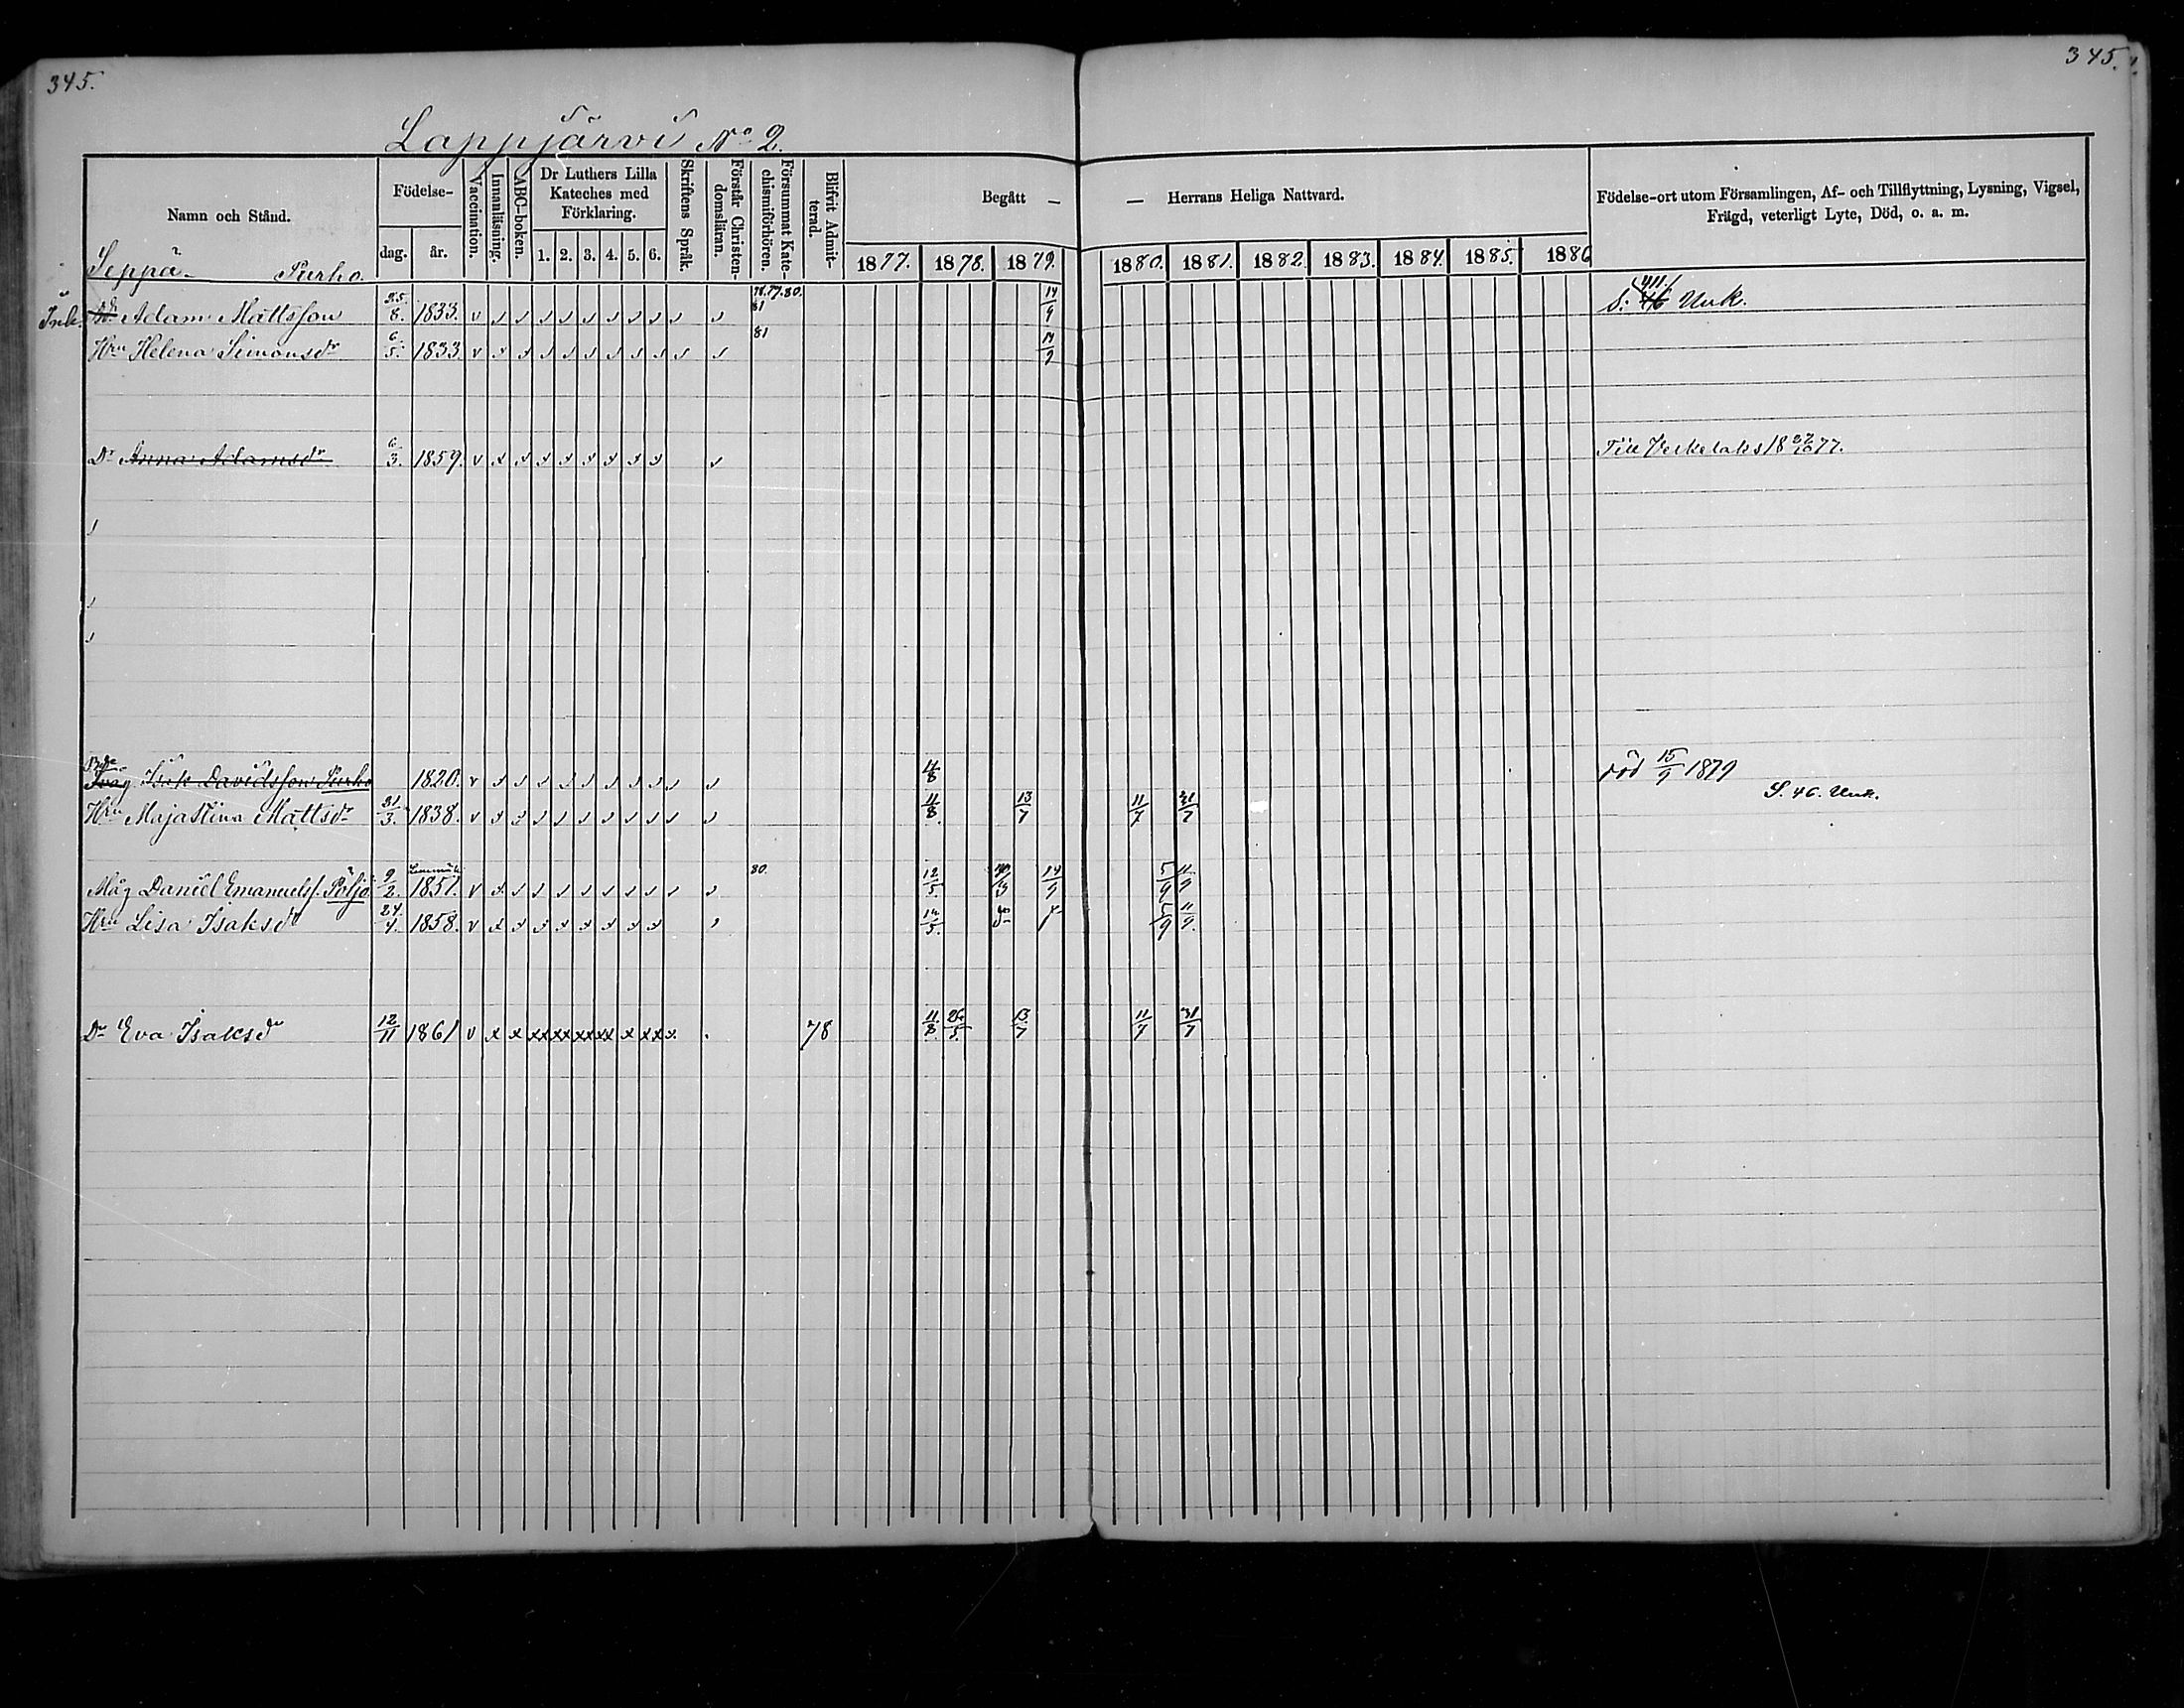 345.
345.
Lappjärvi No 2.
Namn och Stånd.
Födelse-
dag.
år.
Vaccination.
Innanläsning.
ABC-boken.
Dr Luthers Lilla Kateches med Förklaring.
1. 2. 3. 4. 5. 6.
Skriftens Språk.
Förstår Christen-domsläran.
Försummat Kate-chismiförhören.
Blifvit Admit-terad.
Begått — — Herrans Heliga Nattvard.
1877. 1878. 1879. 1880. 1881. 1882. 1883. 1884. 1885. 1886
Födelse-ort utom Församlingen, Af- och Tillflyttning, Lysning, Vigsel,
Frägd, veterligt Lyte, Död, o. a. m.
Seppä Purho.
Inh. Adam Mattsson 25/8. 1833. v 76.77.80. 81 14/9 S. 411. 46 Unk.
Hru Helena Simonsdr 6/5. 1833. v 81 14/9
Dr Anna Adamsdr 6/3. 1859. v Till Veckelaks 18 27/10 77.
Isak Davidsson Purho 1820. v 11/8 död 15/9 1879
Hru Maja Stina Mattsdr 31/3. 1838. v 11/8. 13/7 11/7 31/7 S. 46. Unk.
Måg Daniel Emanuelss. Pöljö 9/2. 1851. v 80. 12/5 14/9 5/9 11/9
Hru Lisa Isaksdr 24/4. 1858. v 12/5. 5/9 11/9.
Dr Eva Isaksdr 12/11 1861 v x x xx xx xx xx x xx x. 78 11/8. 26/5. 13/7 11/7 31/7